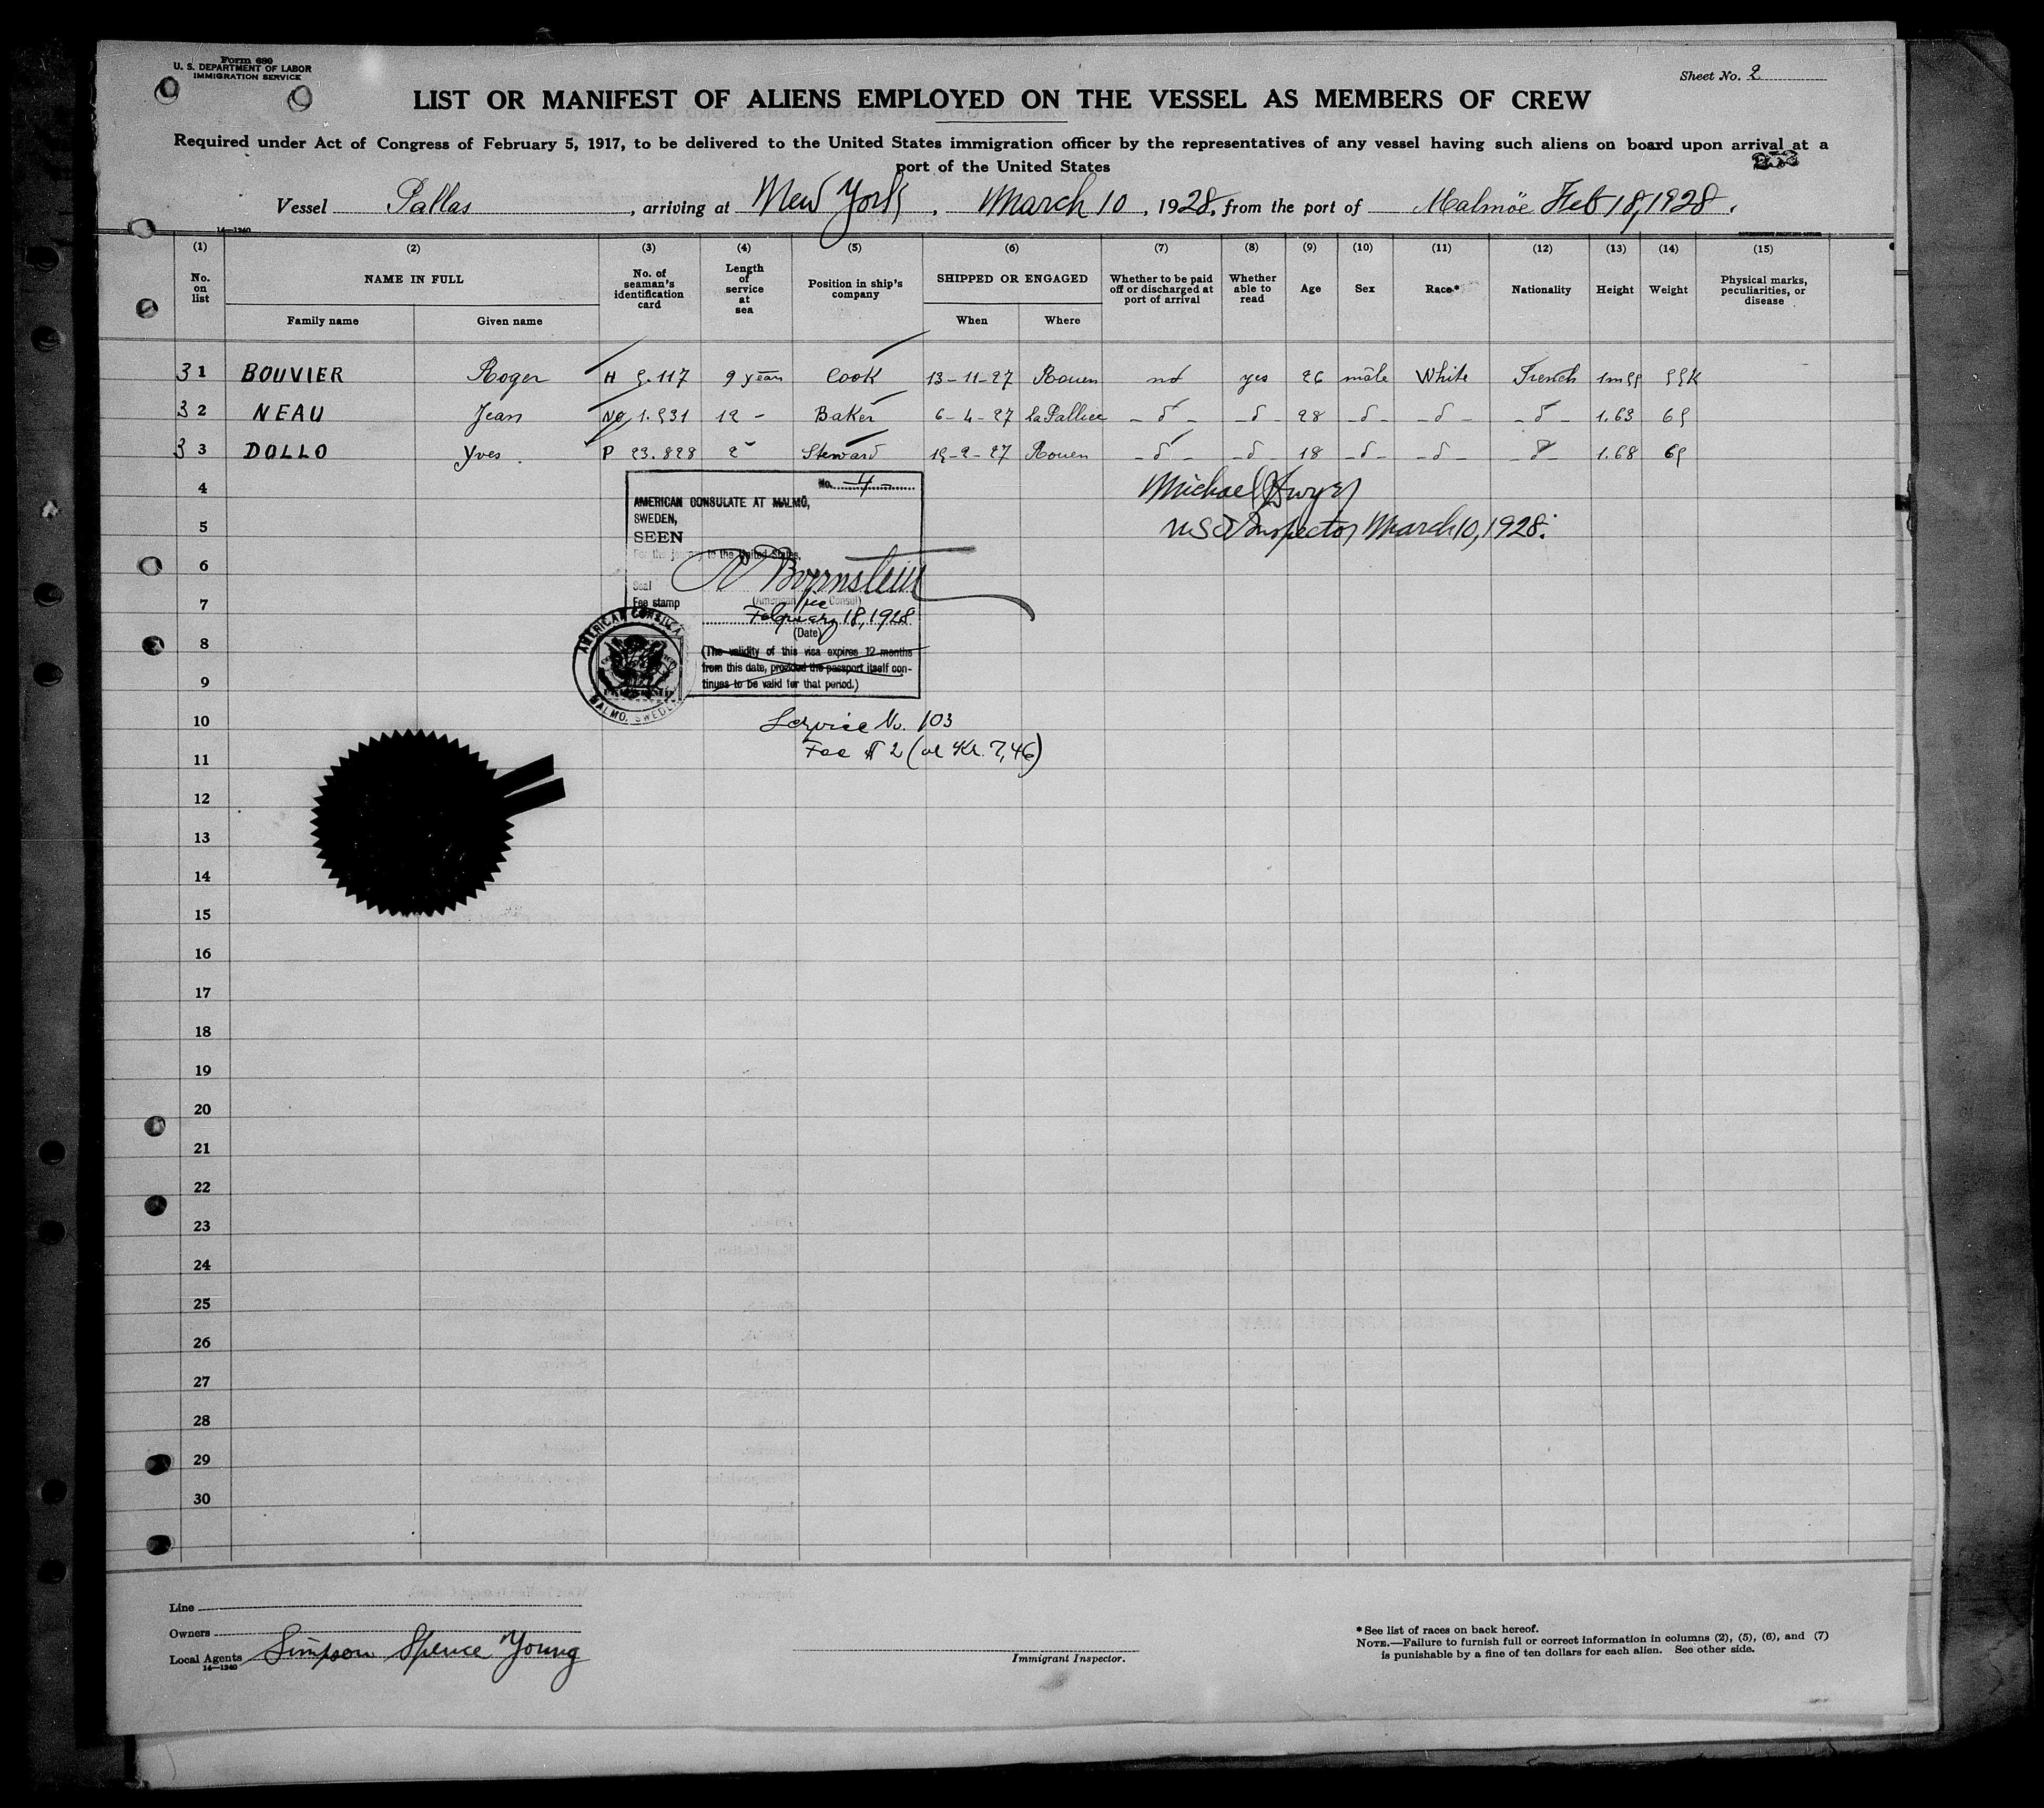 Form 680
U. S. DEPARTMENT OF LABOR
IMMIGRATION SERVICE
Sheet No. 2
LIST OR MANIFEST OF ALIENS EMPLOYED ON THE VESSEL AS MEMBERS OF CREW
Required under Act of Congress of February 5, 1917, to be delivered to the United States immigration officer by the representatives of any vessel having such aliens on board upon arrival at a
port of the United States
Vessel Pallas, arriving at New York, March 10, 1928, from the port of Malmöe Feb 18, 1928.
14—1240
(1) (2) (3) (4) (5) (6) (7) (8) (9) (10) (11) (12) (13) (14) (15)
No. on list NAME IN FULL No. of seaman's identification card Length of service at sea Position in ship's company SHIPPED OR ENGAGED Whether to be paid off or discharged at port of arrival Whether able to read Age Sex Race* Nationality Height Weight Physical marks, peculiarities, or disease
Family name Given name When Where
31 BOUVIER Roger H 5.117 9 years Cook 13-11-27 Rouen not yes 26 male White French 1m55 55K
32 NEAU Jean No 1.531 12 - Baker 6-4-27 La Pallice - d - - d - 28 - d - - d - - d - 1.63 65
33 DOLLO Yves P 23.828 2 Steward 15-2-27 Rouen - d - - d - 18 - d - - d - - d - 1.68 65
4
No. 4
AMERICAN CONSULATE AT MALMÖ,
SWEDEN,
SEEN
For the journey to the United States,
Michael Dwyer
5
US Inspector March 10, 1928.
6
Seal
(American Vice Consul)
7
Fee stamp
February 18, 1928
(Date)
8
(The validity of this visa expires 12 months
from this date, provided the passport itself con-
9
tinues to be valid for that period.)
AMERICAN CONSULA
MALMO, SWEDEN
10
Service No. 103
11
Fee $ 2 (or Kr. 7,46)
12
13
14
15
16
17
18
19
20
21
22
23
24
25
26
27
28
29
30
Line
Owners
Local Agents Simpson Spence Young
14—1240
Immigrant Inspector.
*See list of races on back hereof.
NOTE.—Failure to furnish full or correct information in columns (2), (5), (6), and (7)
is punishable by a fine of ten dollars for each alien. See other side.